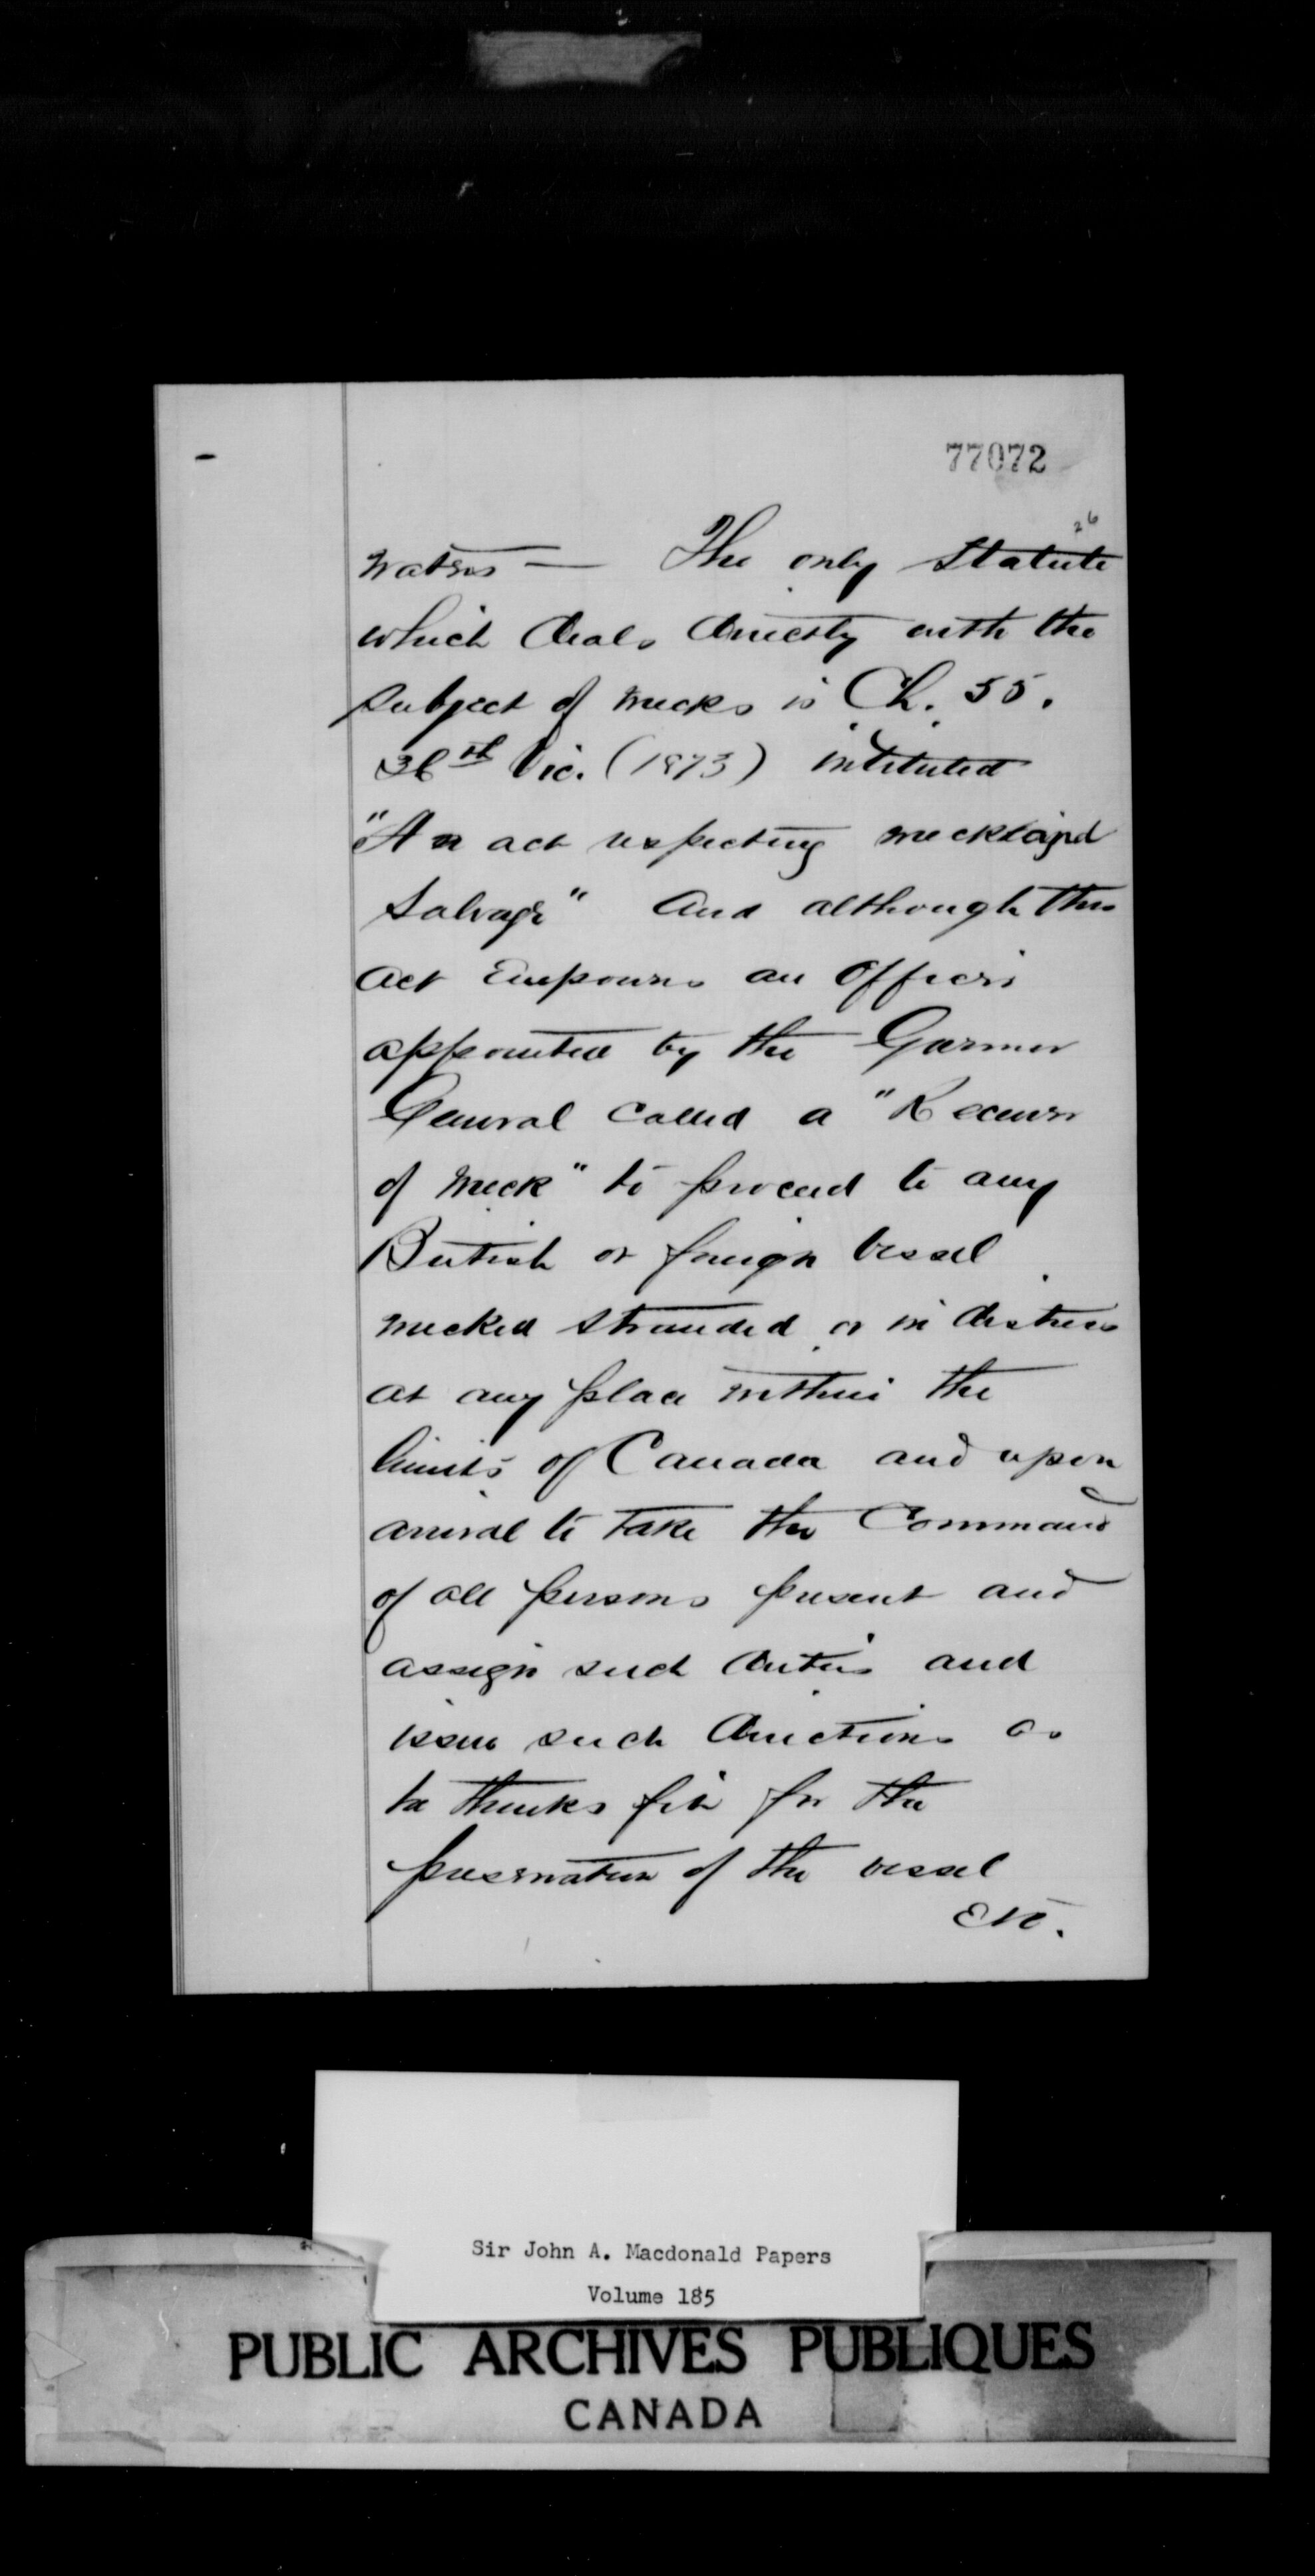 77072
26
waters — The only Statute
which deals directly with the
subject of wrecks is Ch. 55.
36th Vic. (1873) intituled
"An act respecting wreck and
Salvage" and although this
act empowers an officer
appointed by the Governor
General called a "Receiver
of wreck" to proceed to any
British or foreign vessel
wrecked stranded or in distress
at any place within the
limits of Canada and upon
arrival to take the Command
of all persons present and
assign such duties and
issue such directions as
he thinks fit for the
preservation of the vessel
etc.
Sir John A. Macdonald Papers
Volume 185
PUBLIC ARCHIVES PUBLIQUES
CANADA